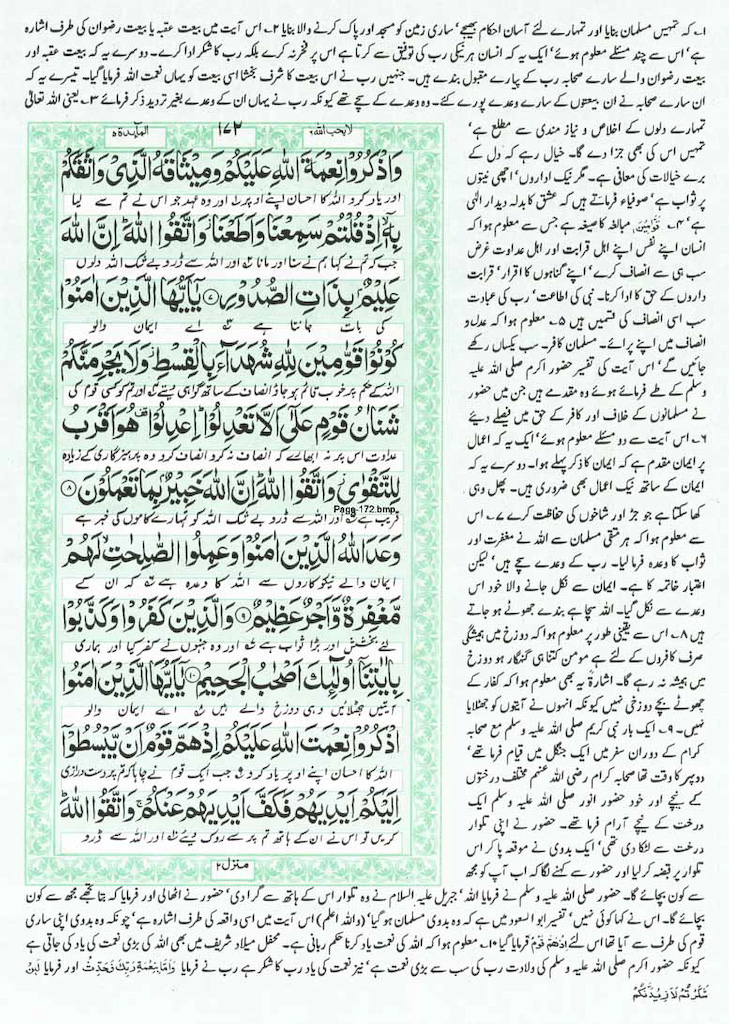 ۱۔ کہ تمہیں مسلمان بنایا اور تمہارے لئے آسان احکام بھیجے' ساری زمین کو مسجد اور پاک کرنے والا بنایا ۲۔ اس آیت میں بیعت عقبہ یا بیعت رضوان کی طرف اشارہ
ہے' اس سے چند مسئلے معلوم ہوئے' ایک یہ کہ انسان ہر نیکی رب کی توفیق سے کرتا ہے اس پر فخر نہ کرے بلکہ رب کا شکر ادا کرے۔ دوسرے یہ کہ بیعت عقبہ اور
بیعت رضوان والے سارے صحابہ رب کے پیارے مقبول بندے ہیں۔ جنہیں رب نے اس بیعت کا شرف بخشا اسی بیعت کو یہاں نعمت اللہ فرمایا گیا۔ تیسرے یہ کہ
ان سارے صحابہ نے ان بیعتوں کے سارے وعدے پورے کئے۔ وہ وعدے کے سچے تھے کیونکہ رب نے یہاں ان کے وعدے بغیر تردید ذکر فرمائے ۳۔ یعنی اللہ تعالیٰ
تمہارے دلوں کے اخلاص و نیاز مندی سے مطلع ہے'
تمہیں اس کی بھی جزا دے گا۔ خیال رہے کہ دل کے
برے خیالات کی معافی ہے۔ مگر نیک ارادوں' اچھی نیتوں
پر ثواب ہے' صوفیاء فرماتے ہیں کہ عشق کا بدلہ دیدار الہی
ہے' ۴۔ قَوّٰمِیْنَ مبالغہ کا صیغہ ہے جس سے معلوم ہوا کہ
انسان اپنے نفس اپنے اہل قرابت اور اہل عداوت غرض
سب ہی سے انصاف کرے' اپنے گناہوں کا اقرار' قرابت
داروں کے حق کا ادا کرنا۔ نبی کی اطاعت' رب کی عبادت
سب اسی انصاف کی قسمیں ہیں ۵۔ معلوم ہوا کہ عدل و
انصاف میں اپنے پرائے۔ مسلمان کافر۔ سب یکساں رکھے
جائیں گے' اس آیت کی تفسیر حضور اکرم صلی اللہ علیہ
وسلم کے طے فرمائے ہوئے وہ مقدمے ہیں جن میں حضور
نے مسلمانوں کے خلاف اور کافر کے حق میں فیصلے دیئے
۶۔ اس آیت سے دو مسئلے معلوم ہوئے' ایک یہ کہ اعمال
پر ایمان مقدم ہے کہ ایمان کا ذکر پہلے ہوا۔ دوسرے یہ کہ
ایمان کے ساتھ نیک اعمال بھی ضروری ہیں۔ پھل وہی
کھا سکتا ہے جو جڑ اور شاخوں کی حفاظت کرے ۷۔ اس
سے معلوم ہوا کہ ہر متقی مسلمان سے اللہ نے مغفرت اور
ثواب کا وعدہ فرما لیا۔ رب کے وعدے سچے ہیں' لیکن
اعتبار خاتمہ کا ہے۔ ایمان سے نکل جانے والا خود اس
وعدے سے نکل گیا۔ اللہ سچا ہے بندے جھوٹے ہو جاتے
ہیں ۸۔ اس سے یقینی طور پر معلوم ہوا کہ دوزخ میں ہمیشگی
صرف کافروں کے لئے ہے مومن کتنا ہی گنہگار ہو دوزخ
میں ہمیشہ نہ رہے گا۔ اشارۃً یہ بھی معلوم ہوا کہ کفار کے
چھوٹے بچے دوزخی نہیں کیونکہ انہوں نے آیتوں کو جھٹلایا
نہیں۔ ۹۔ ایک بار نبی کریم صلی اللہ علیہ وسلم مع صحابہ
کرام کے دوران سفر میں ایک جنگل میں قیام فرما تھے'
دوپہر کا وقت تھا صحابہ کرام رضی اللہ عنہم مختلف درختوں
کے نیچے اور خود حضور انور صلی اللہ علیہ وسلم ایک
درخت کے نیچے آرام فرما تھے۔ حضور نے اپنی تلوار
درخت سے لٹکا دی تھی' ایک بدوی نے موقعہ پا کر اس
تلوار پر قبضہ کر لیا اور حضور سے کہنے لگا کہ اب آپ کو مجھ
لا یحب اللہ ۶
۱۷۲
المآئدۃ ۵
وَاذْكُرُوْا نِعْمَةَ اللّٰهِ عَلَيْكُمْ وَمِيْثَاقَهُ الَّذِيْ وَاثَقَكُمْ
اور یاد کرو اللہ کا احسان اپنے اوپر ۱ اور وہ عہد جو اس نے تم سے لیا
بِهٖٓ اِذْ قُلْتُمْ سَمِعْنَا وَاَطَعْنَا وَاتَّقُوا اللّٰهَ اِنَّ اللّٰهَ
جب کہ تم نے کہا ہم نے سنا اور مانا ۲ اور اللہ سے ڈرو بے شک اللہ دلوں
عَلِيْمٌ بِذَاتِ الصُّدُوْرِ ۷ يٰٓاَيُّهَا الَّذِيْنَ اٰمَنُوْا
کی بات جانتا ہے ۳ اے ایمان والو
كُوْنُوْا قَوّٰمِيْنَ لِلّٰهِ شُهَدَآءَ بِالْقِسْطِ وَلَا يَجْرِمَنَّكُمْ
اللہ کے حکم پر خوب قائم ہو جاؤ انصاف کے ساتھ گواہی دیتے ۴ اور تم کو کسی قوم کی
شَنَاٰنُ قَوْمٍ عَلٰٓى اَلَّا تَعْدِلُوْا اِعْدِلُوْا هُوَ اَقْرَبُ
عداوت اس پر نہ ابھارے کہ انصاف نہ کرو انصاف کرو وہ پرہیزگاری کے زیادہ
لِلتَّقْوٰى وَاتَّقُوا اللّٰهَ اِنَّ اللّٰهَ خَبِيْرٌ بِمَا تَعْمَلُوْنَ ۸
Page-172.bmp
قریب ہے ۵ اور اللہ سے ڈرو بے شک اللہ کو تمہارے کاموں کی خبر ہے
وَعَدَ اللّٰهُ الَّذِيْنَ اٰمَنُوْا وَعَمِلُوا الصّٰلِحٰتِ لَهُمْ
ایمان والے نیکوکاروں سے اللہ کا وعدہ ہے ۶ کہ ان کے
مَّغْفِرَةٌ وَّاَجْرٌ عَظِيْمٌ ۹ وَالَّذِيْنَ كَفَرُوْا وَكَذَّبُوْا
لئے بخشش اور بڑا ثواب ہے ۷ اور وہ جنہوں نے کفر کیا اور ہماری
بِاٰيٰتِنَآ اُولٰٓئِكَ اَصْحٰبُ الْجَحِيْمِ ۱۰ يٰٓاَيُّهَا الَّذِيْنَ اٰمَنُوا
آیتیں جھٹلائیں وہی دوزخ والے ہیں ۸ اے ایمان والو
اذْكُرُوْا نِعْمَتَ اللّٰهِ عَلَيْكُمْ اِذْ هَمَّ قَوْمٌ اَنْ يَّبْسُطُوْٓا
اللہ کا احسان اپنے اوپر یاد کرو جب ایک قوم نے چاہا کہ تم پر دست درازی
اِلَيْكُمْ اَيْدِيَهُمْ فَكَفَّ اَيْدِيَهُمْ عَنْكُمْ وَاتَّقُوا اللّٰهَ
کریں تو اس نے ان کے ہاتھ تم پر سے روک دیئے ۹ اور اللہ سے ڈرو
منزل ۲
سے کون بچائے گا۔ حضور صلی اللہ علیہ وسلم نے فرمایا اللہ' جبریل علیہ السلام نے وہ تلوار اس کے ہاتھ سے گرا دی' حضور نے اٹھالی اور فرمایا کہ بتا تجھے مجھ سے کون
بچائے گا۔ اس نے کہا کوئی نہیں' تفسیر ابو السعود میں ہے کہ وہ بدوی مسلمان ہو گیا' (واللہ اعلم) اس آیت میں اسی واقعہ کی طرف اشارہ ہے' چونکہ وہ بدوی اپنی ساری
قوم کی طرف سے آیا تھا اس لئے اِذْ هَمَّ قَوْمٌ فرمایا گیا ۱۰۔ معلوم ہوا کہ اللہ کی نعمت یاد کرنا حکم ربانی ہے۔ محفل میلاد شریف میں بھی اللہ کی بڑی نعمت کی یاد کی جاتی ہے
کیونکہ حضور اکرم صلی اللہ علیہ وسلم کی ولادت رب کی سب سے بڑی نعمت ہے' نیز نعمت کی یاد رب کا شکر ہے رب نے فرمایا وَاَمَّا بِنِعْمَةِ رَبِّكَ فَحَدِّثْ اور فرمایا لَئِنْ
شَكَرْتُمْ لَاَزِيْدَنَّكُمْ